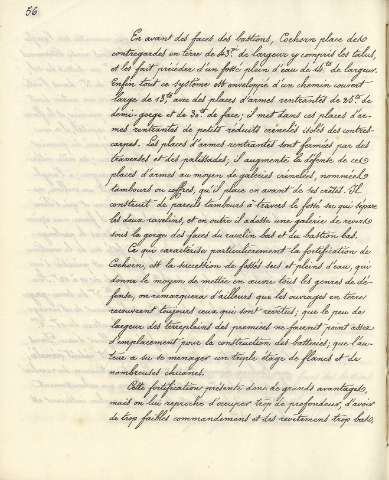 56.
En avant des faces des bastions, Coehorn place des
contregardes en terre de 43m. de largeur y compris les talus,
et les fait précéder d'un fossé plein d'eau de de largeur.
Enfin tout ce système est enveloppé d'un chemin couvert
large de 13m, avec des places d'armes rentrantes de de
demi-gorge et de de face; il met dans ces places d'ar-
mes rentrantes de petits réduits crénelés isolés des contres-
carpes. Les places d'armes rentrantes sont fermées par des
traverses et des palissades; il augmente la défense de ces
places d'armes au moyen de galeries crénelées, nommées
tambours ou coffres, qu'il place en avant de ses crêtes. Il
construit de pareils tambours à travers le fossé sec qui sépare
les deux ravelins, et en outre il adosse une galerie de revers
sous la gorge des faces du ravelin bas et du bastion bas.
Ce qui caractérise particulièrement la fortification de
Coehorn, est la succession de fossés secs et pleins d'eau, qui
donne le moyen de mettre en œuvre tous les genres de dé-
fense, on remarquera d'ailleurs que les ouvrages en terre
recouvrent toujours ceux qui sont revêtus; que le peu de
largeur des terrepleins des premiers ne fournit point assez
d'emplacement pour la construction des batteries; que l'au-
teur a su se ménager un triple étage de flancs et de
nombreuses chicanes.
Cette fortification présente donc de grands avantages,
mais on lui reproche d'occuper trop de profondeur, d'avoir
de trop faibles commandement et des revêtements trop bas,